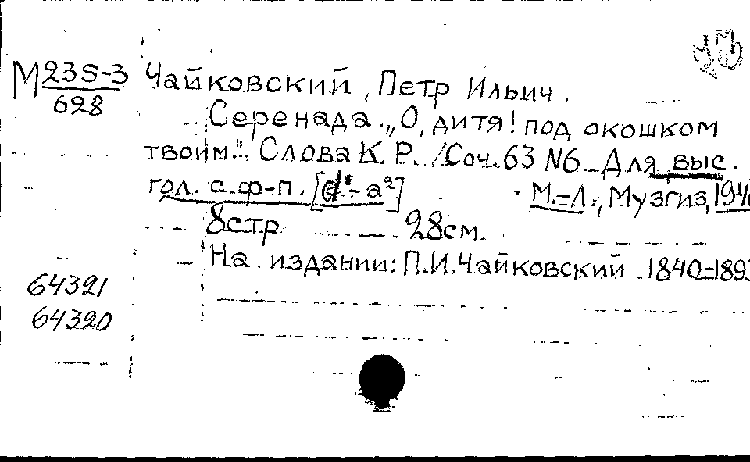 М 23S-3
628
Чайковский, Петр Ильич.
Серенада. „О, дитя! под окошком
твоим". Слова К. Р. /Соч. 63 N6. Для выс.
гол. с ф-п. [d¹-a²] М.-Л., Музгиз,
8 стр 28 см.
На издании: П.И. Чайковский 1840-189
64321
64320